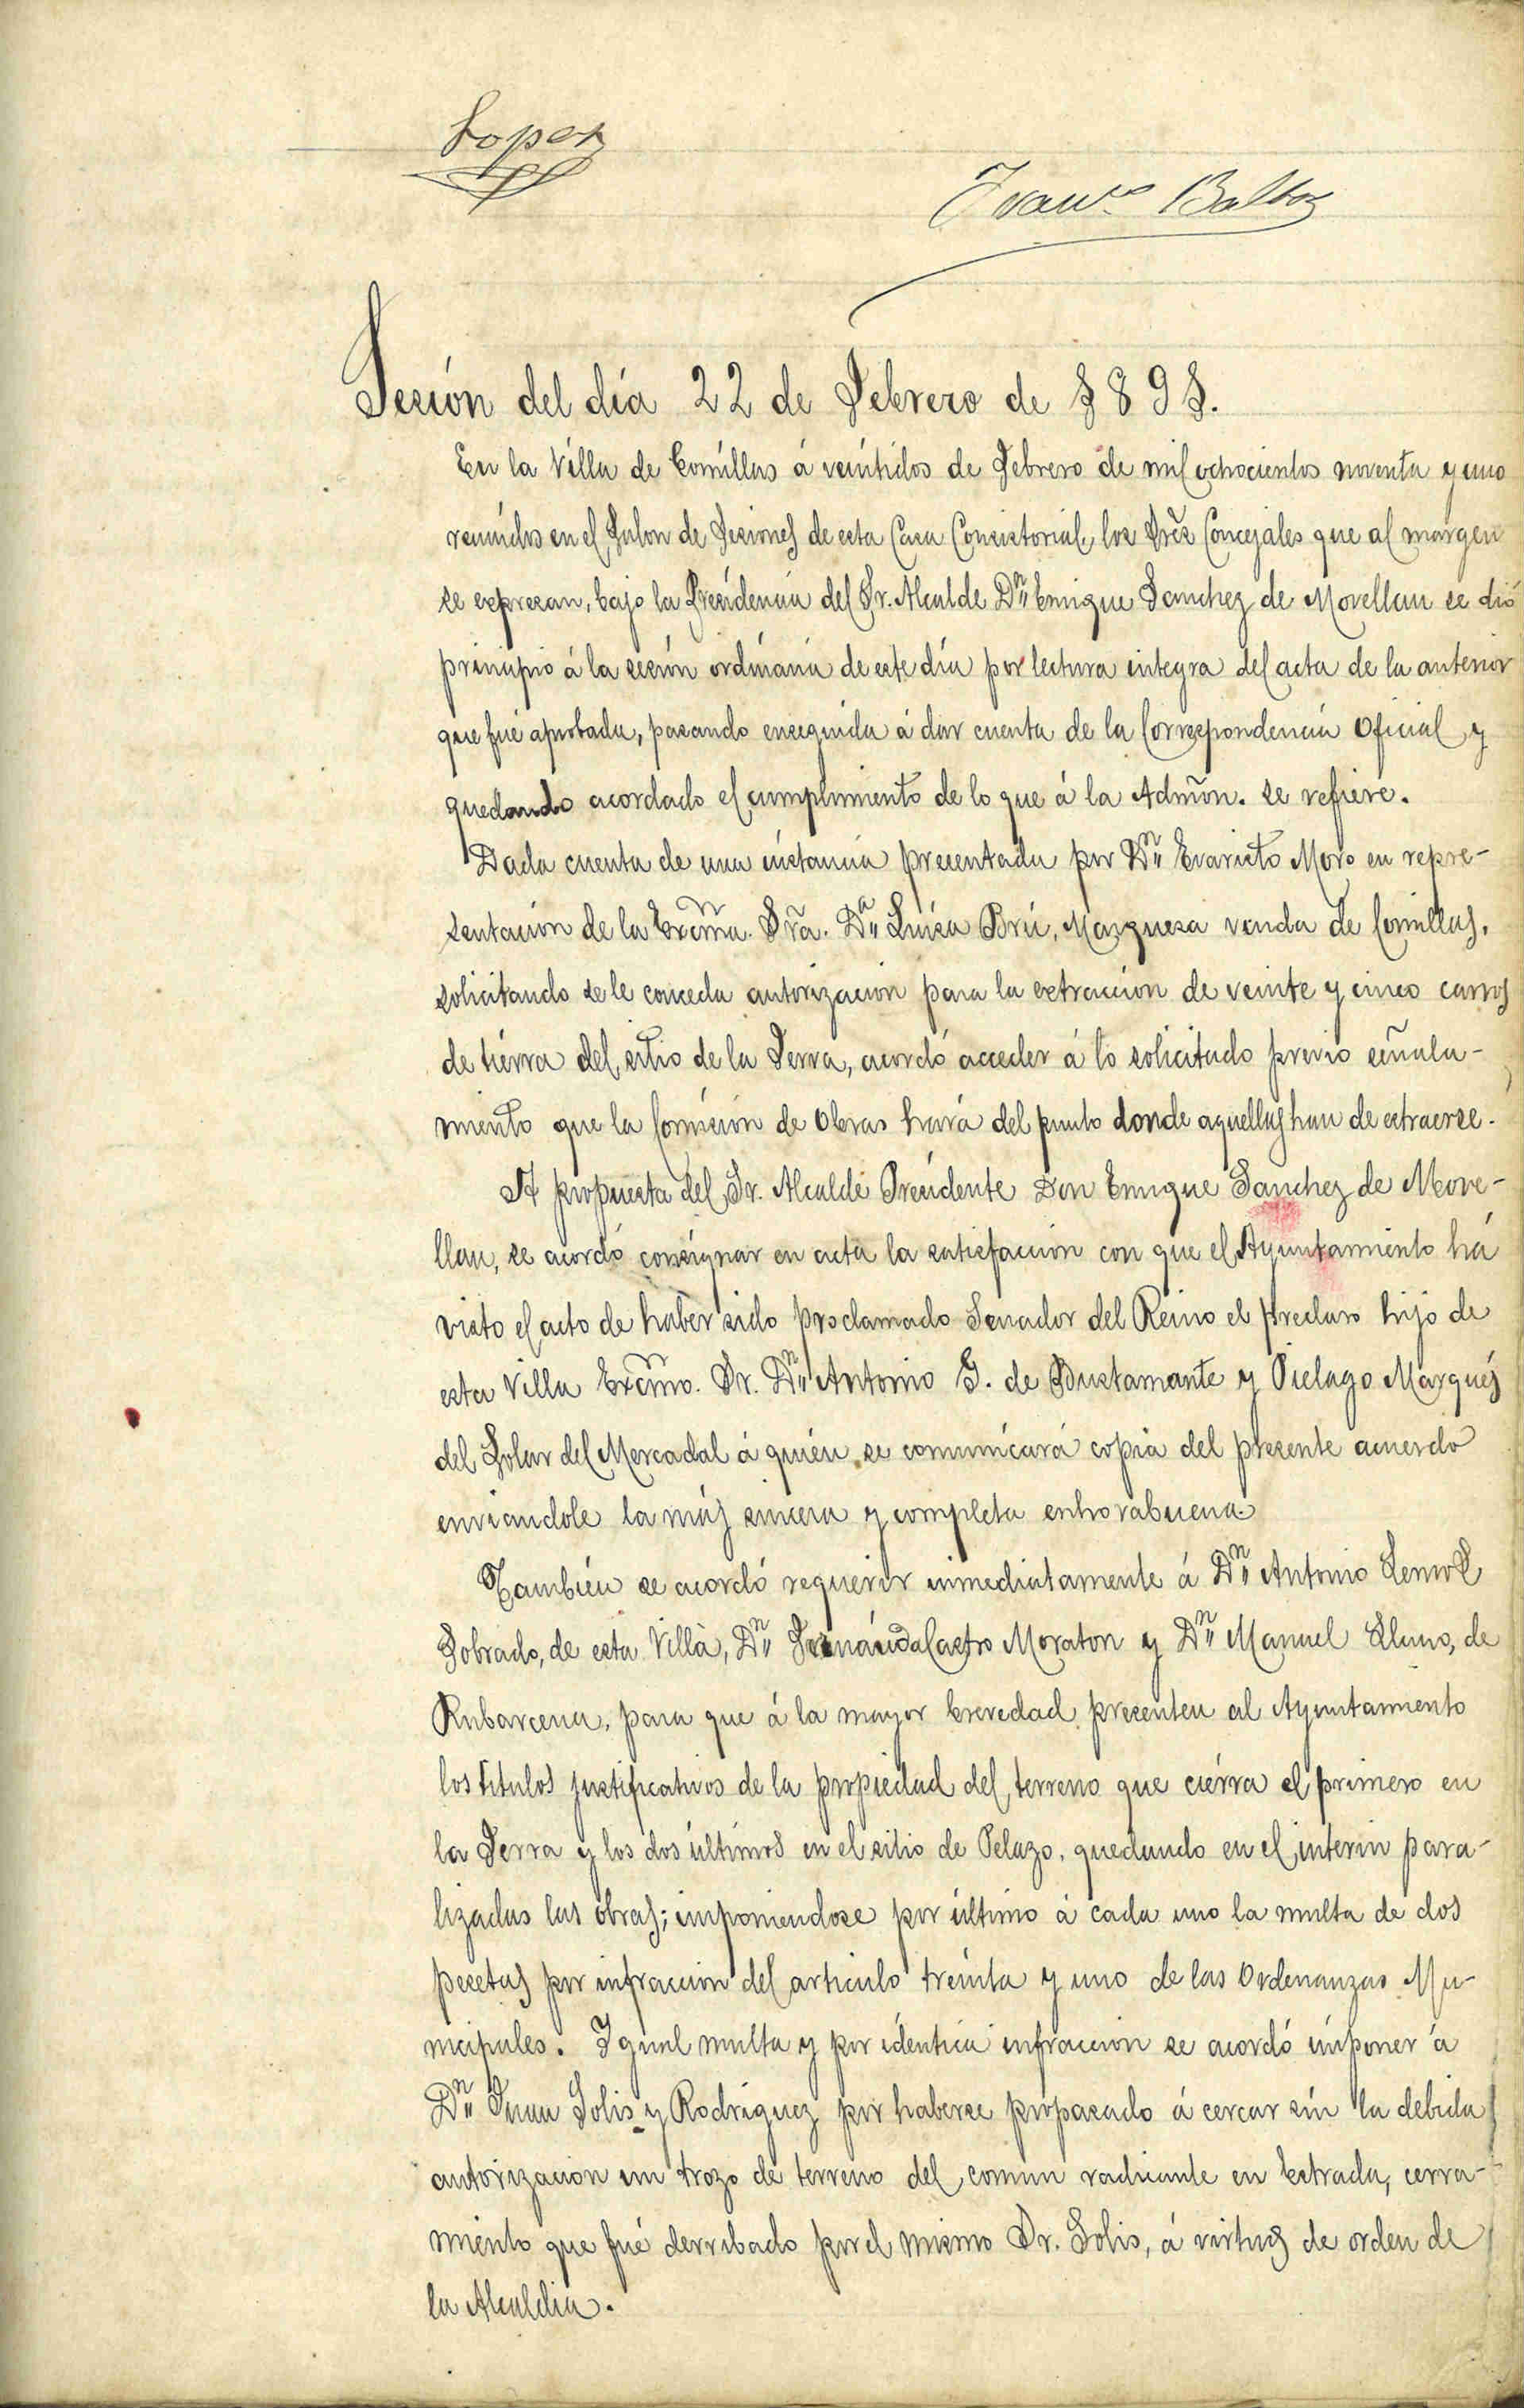 Lopez
Franco Balboa
Sesión del día 22 de Febrero de 1891.
En la Villa de Comillas á veintidos de Febrero de mil ochocientos noventa y uno
reunidos en el Salon de Sesiones de esta Casa Consistorial, los Sres Concejales que al margen
se expresan, bajo la Presidencia del Sr. Alcalde Dn Enrique Sanchez de Movellan se dió
principio á la sesión ordinaria de este día por lectura integra del acta de la anterior
que fué aprobada, pasando enseguida á dar cuenta de la Correspondencia Oficial y
quedando acordado el cumplimiento de lo que á la Admón. se refiere.
Dada cuenta de una instancia presentada por Dn Evaristo Moro en repre-
sentación de la Excma. Sra. Da Luisa Brú, Marquesa viuda de Comillas,
solicitando se le conceda autorización para la extracción de veinte y cinco carros
de tierra del sitio de la Serra, acordó acceder á lo solicitado previo señala-
miento que la Comisión de Obras hará del punto donde aquellas han de extraerse.
A propuesta del Sr. Alcalde Presidente Don Enrique Sanchez de Move-
llan, se acordó consignar en acta la satisfacción con que el Ayuntamiento há
visto el acto de haber sido proclamado Senador del Reino el preclaro hijo de
esta Villa Excmo. Sr. Dn Antonio G. de Bustamante y Pielago Marqués
del Solar del Mercadal á quién se comunicará copia del presente acuerdo
enviandole la más sincera y completa enhorabuena.
También se acordó requerir inmediatamente á Dn Antonio
Sobrado, de esta Villa, Dn Castro Moraton y Dn Manuel Llano, de
Rubarcena, para que á la mayor brevedad presenten al Ayuntamiento
los titulos justificativos de la propiedad del terreno que cierra el primero en
la Serra y los dos últimos en el sitio de Pelazo, quedando en el interin para-
lizadas las obras; imponiendose por último á cada uno la multa de dos
pesetas por infracción del articulo treinta y uno de las Ordenanzas Mu-
nicipales. Igual multa y por idéntica infracción se acordó imponer á
Dn Juan Solis y Rodriguez por haberse propasado á cercar sin la debida
autorización un trozo de terreno del comun radicante en Estrada, cerra-
miento que fué derribado por el mismo Sr. Solis, á virtud de orden de
la Alcaldia.